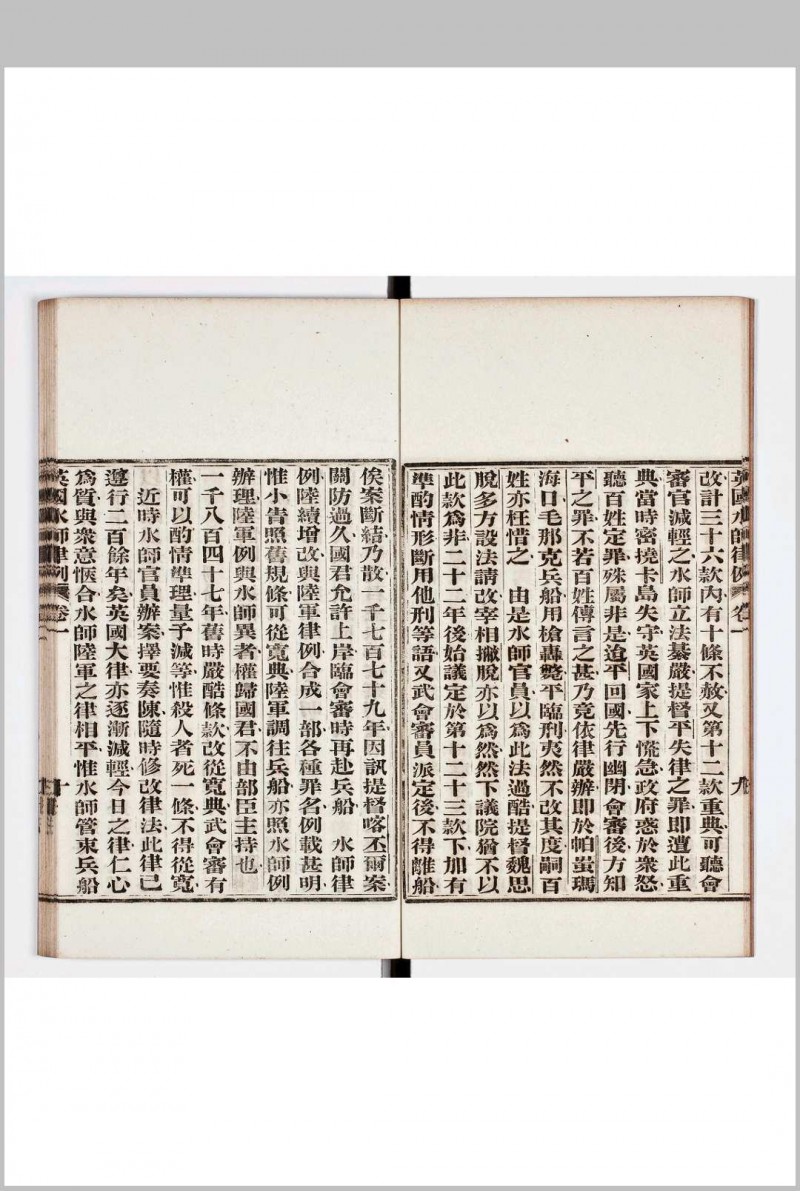 英國水師律例 卷一 九
改計三十六款內有十條不赦又第十二款重典可聽會
審官減輕之水師立法綦嚴提督平失律之罪即遭此重
典當時密撓卡島失守英國家上下慌急政府惑於衆怒
聽百姓定罪殊屬非是迨平回國先行幽閉會審後方知
平之罪不若百姓傳言之甚乃竟依律嚴辦即於帕蚩瑪
海口毛那克兵船用槍轟斃平臨刑夷然不改其度嗣百
姓亦枉惜之 由是水師官員以爲此法過酷提督魏思
脫多方設法請改宰相撇脫亦以爲然然下議院猶不以
此款爲非二十二年後始議定於第十二十三款下加有
準酌情形斷用他刑等語又武會審員派定後不得離船
俟案斷結乃散一千七百七十九年因訊提督喀丕爾案
關防過久國君允許上岸臨會審時再赴兵船 水師律
例陸續增改與陸軍律例合成一部各種罪名例載甚明
惟小眚照舊規條可從寬典陸軍調往兵船亦照水師例
辦理陸軍例與水師異者權歸國君不由部臣主持也
一千八百四十七年舊時嚴酷條款改從寬典武會審有
權可以酌情準理量予減等惟殺人者死一條不得從寬
近時水師官員辦案擇要奏陳隨時修改律法此律已
遵行二百餘年矣英國大律亦逐漸減輕今日之律仁心
爲質與衆意愜合水師陸軍之律相平惟水師管束兵船
英國水師律例 卷一 十